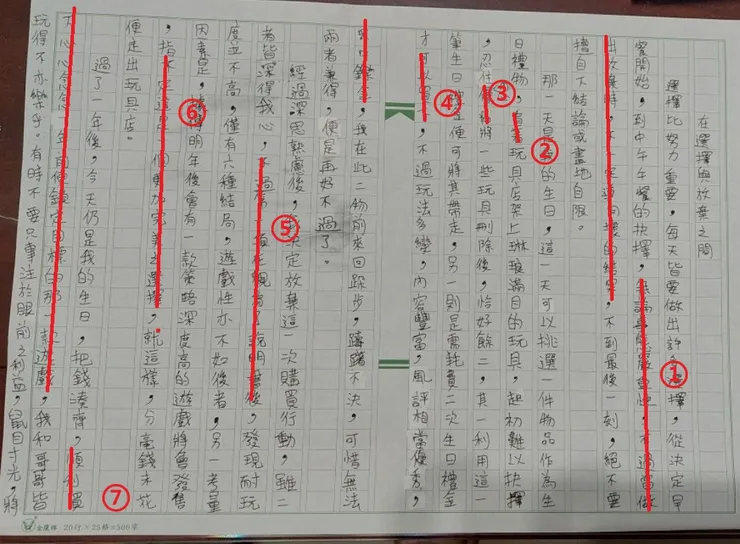 在選擇與放棄之間
選擇比努力重要,每天皆要做出許多選擇,從決定早
餐開始,到中午午餐的抉擇,
出放棄時,不一定導向壞的結果,不到最後一刻,絕不要
擅自下結論或畫地自限。
那一天是我的生日,這一天可以挑選一件物品作為生
日禮物,玩具店架上琳瑯滿目的玩具,起初難以抉擇
,忍住將一些玩具刪除後,恰好餘二,其一利用這一
筆生日便可將其帶走,另一則是需耗費二次生日禮金
才可以買,不過玩法多變,內容豐富,風評相當優秀,
我在此二物前來回踩步,躊躇不決,可惜無法
兩者兼得,便是再好不過了。
經過深思熟慮後,決定放棄這一次購買行動,雖二
者皆深得我心,不過後,發現耐玩
度並不高,僅有六種結局,遊戲性亦不如後者,另一考量
因素是,明年後會有一款策略深度高的遊戲將會發售
,指不定這是個更加完美之選擇,就這樣,分毫錢未花
便走出玩具店。
過了一年後,今天仍是我的生日,把錢湊齊,順利買
下心心念念一年前便鎖定目標的那一款遊戲,我和哥哥皆
玩得不亦樂乎。有時不要只專注於眼前之利益,鼠目寸光,將
①
②
③
④
⑤
⑥
⑦
20行×25格=500字